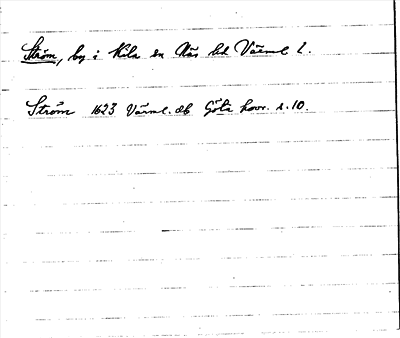 Ström, by i Kila sn Näs hd Värml l.
Ström 1623 Värml. db Göta hovr. s. 10.